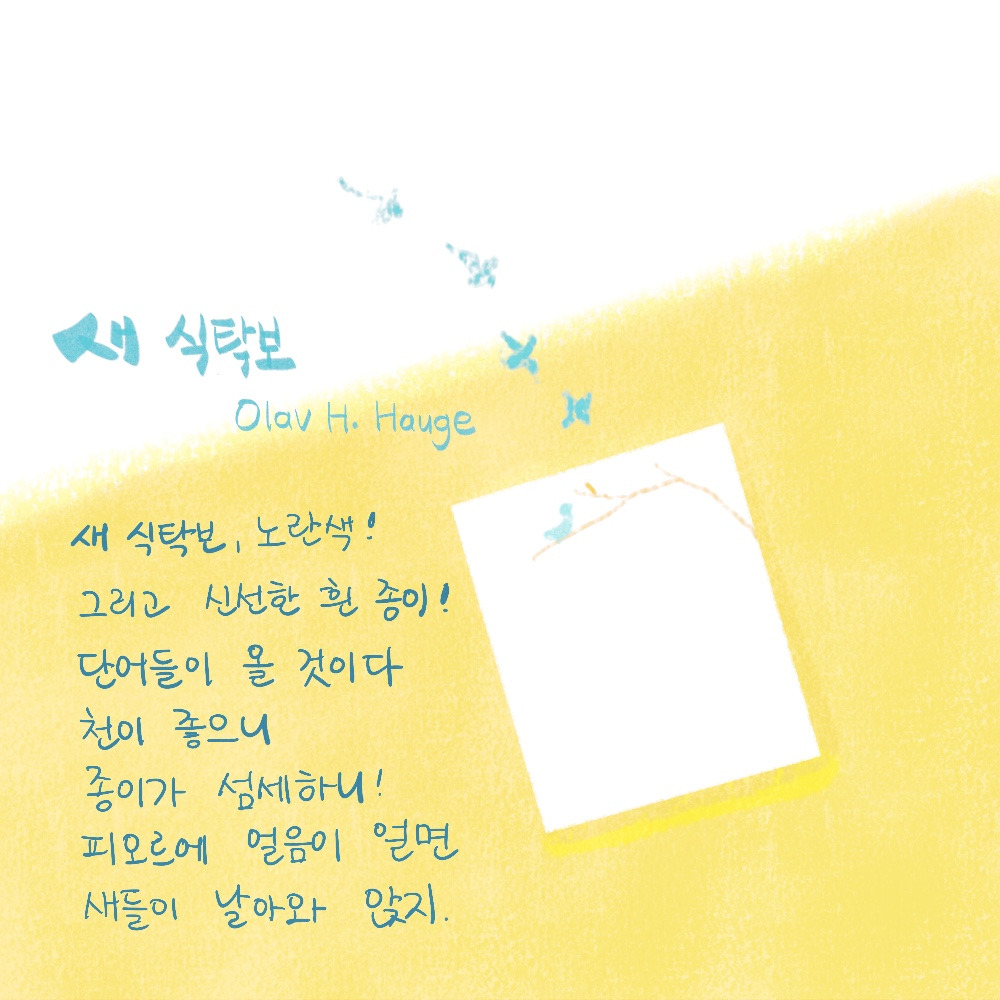 새 식탁보
Olav H. Hauge
새 식탁보, 노란색!
그리고 신선한 흰 종이!
단어들이 올 것이다
천이 좋으니
종이가 섬세하니!
피오르에 얼음이 얼면
새들이 날아와 앉지.